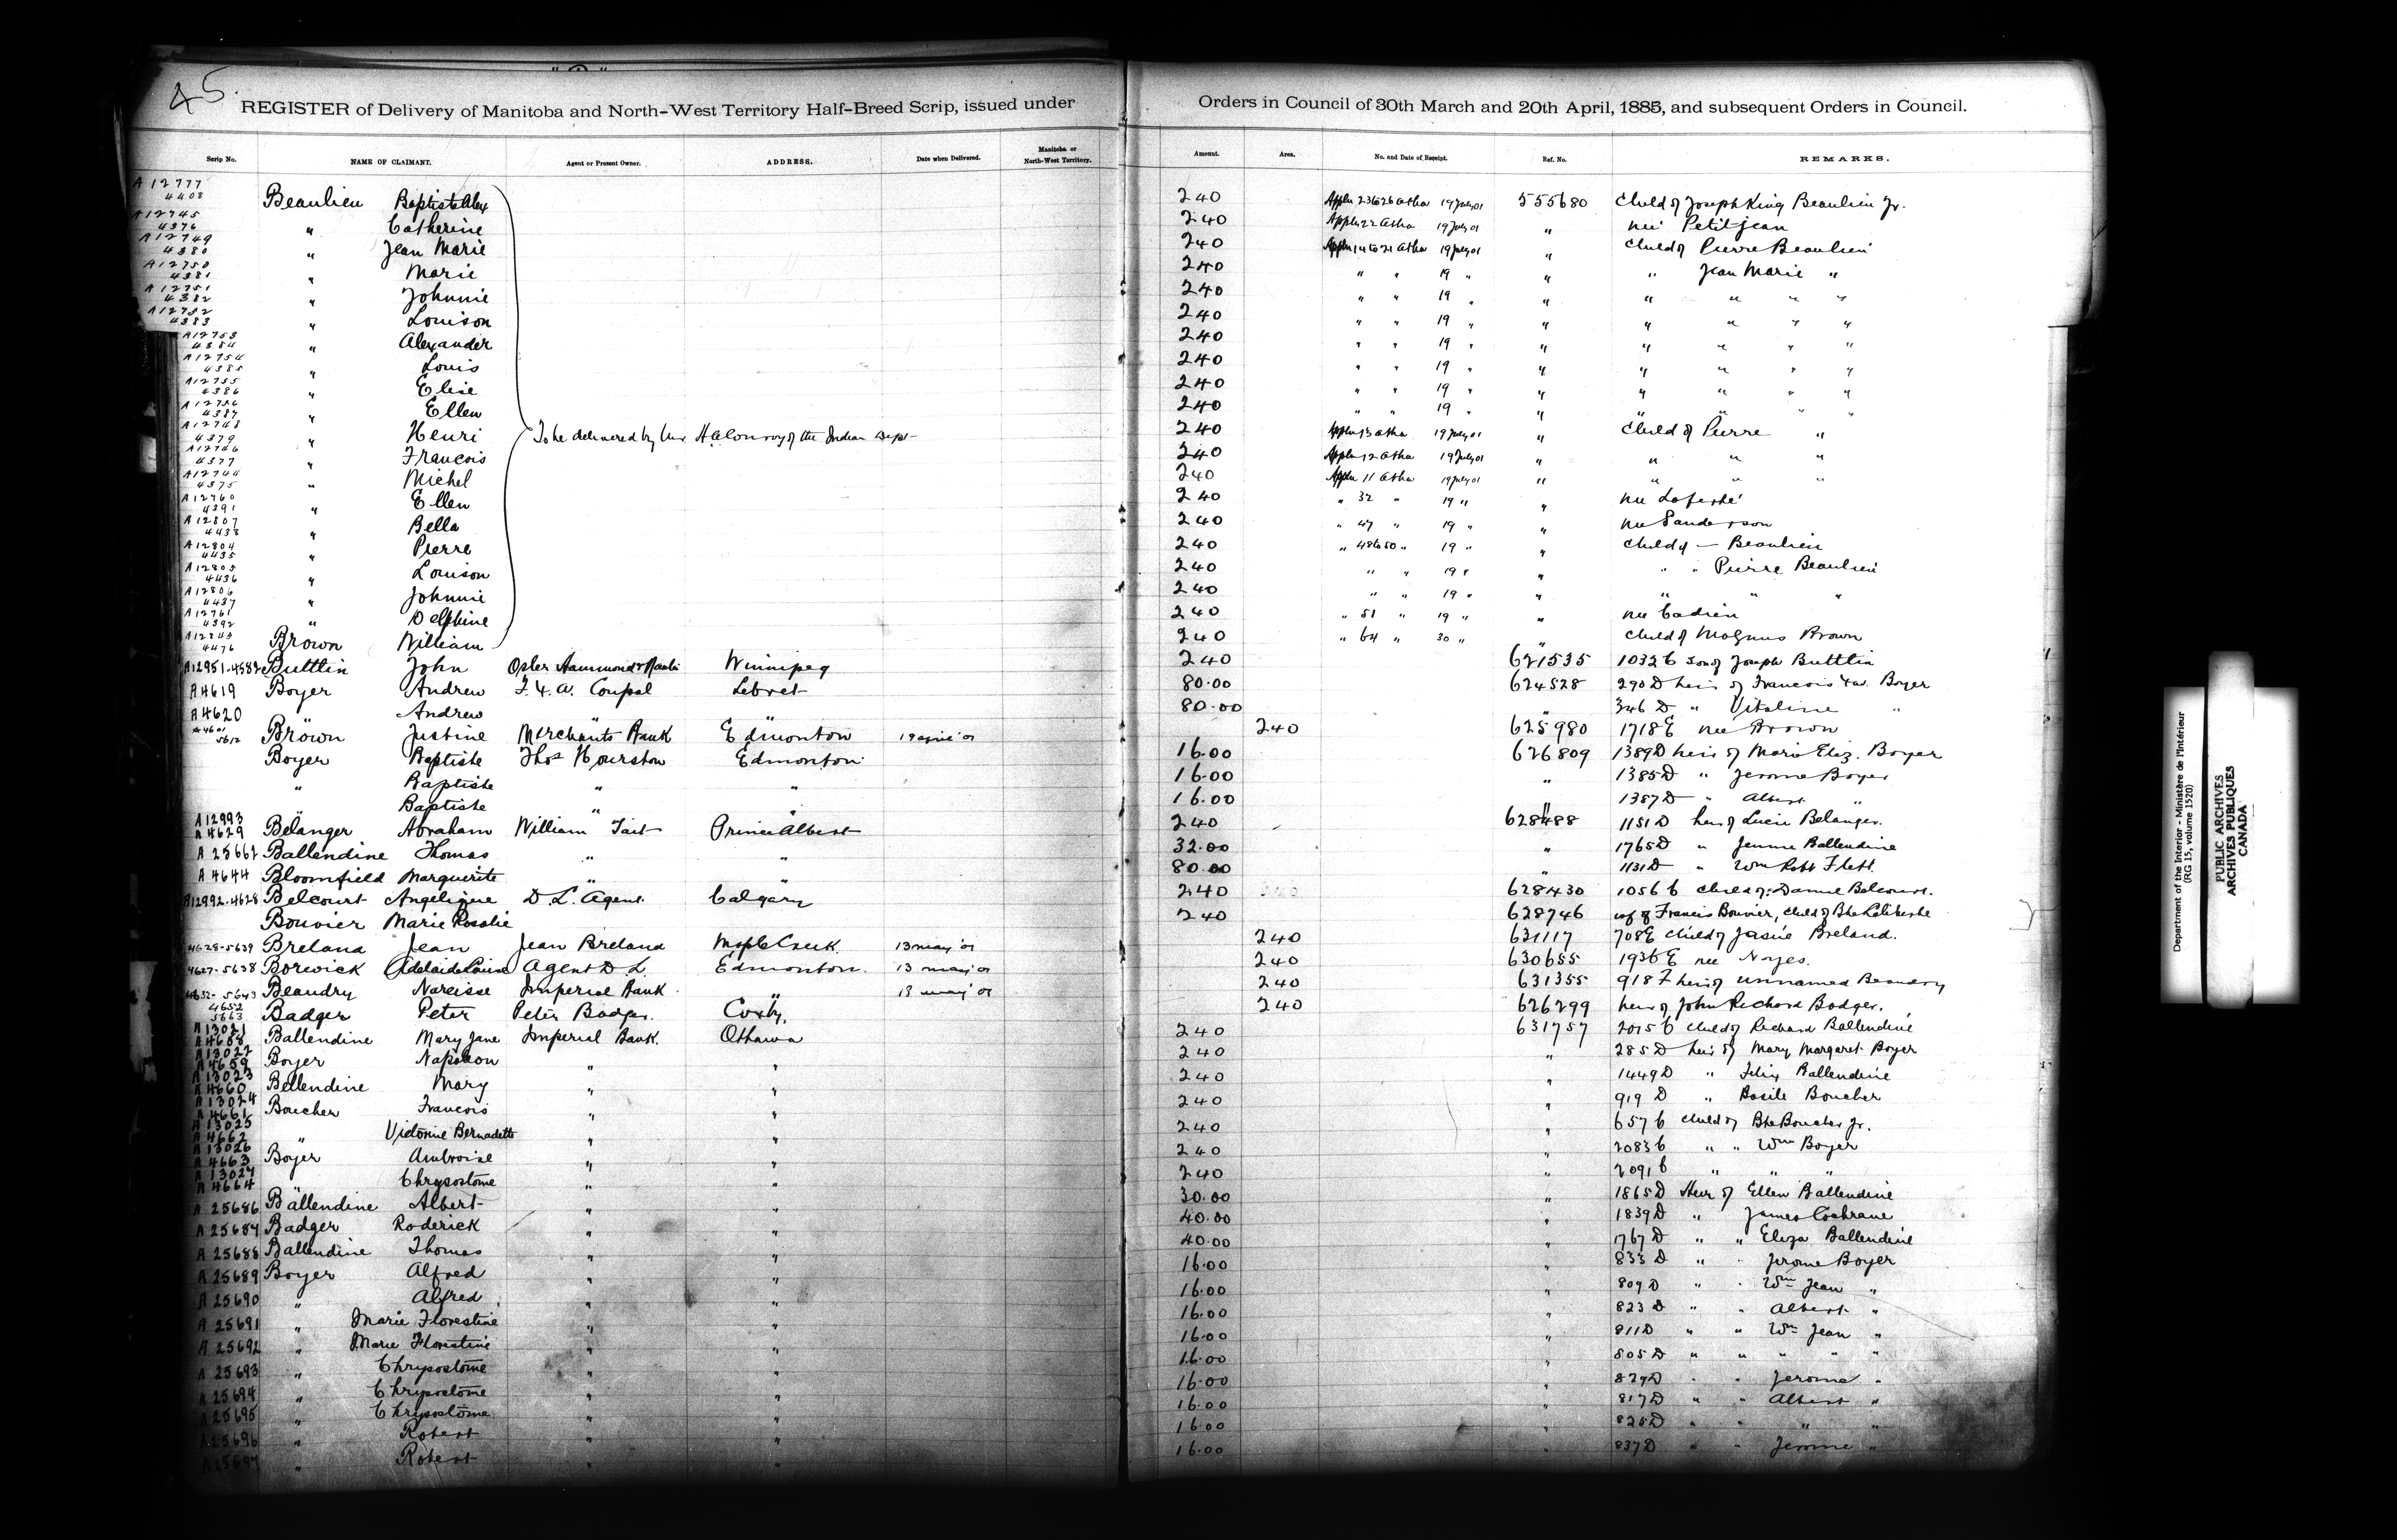 45
REGISTER of Delivery of Manitoba and North-West Territory Half-Breed Scrip, issued under Orders in Council of 30th March and 20th April, 1885, and subsequent Orders in Council.
Scrip No. NAME OF CLAIMANT. Agent or Present Owner. ADDRESS. Date when Delivered. Manitoba or North-West Territory. Amount. Area. No. and Date of Receipt. Ref. No. REMARKS.
A12777 4408 Beaulieu Baptiste Alex 240 19 July 01 555680 Child of Joseph King Beaulieu Jr.
A12745 4376 " Catherine 240 Appln 22 Atha 19 July 01 " née Petitjean
A12749 4380 " Jean Marie 240 19 July 01 " Child of Pierre Beaulieu
A12750 4381 " Marie 240 " " 19 " " " Jean Marie "
A12751 4382 " Johnnie 240 " " 19 " " " " " "
A12752 4383 " Louison 240 " " 19 " " " " " "
A12753 4384 " Alexander 240 " " 19 " " " " " "
A12754 4385 " Louis 240 " " 19 " " " " " "
A12755 4386 " Elise 240 " " 19 " " " " " "
A12756 4387 " Ellen 240 " " 19 " " " " " "
A12748 4379 " Henri To be delivered by of the Indian Dept 240 Appln 13 Atha 19 July 01 " Child of Pierre "
A12746 4377 " Francois 240 Appln 12 Atha 19 July 01 " " " "
A12744 4375 " Michel 240 Appln 11 Atha 19 July 01 " " " "
A12760 4391 " Ellen 240 " 32 " 19 " " née Laferté
A12807 4438 " Bella 240 " 47 " 19 " " née Sanderson
A12804 4435 " Pierre 240 " 48 to 50 " 19 " " Child of — Beaulieu
A12805 4436 " Louison 240 " " 19 " " " " Pierre Beaulieu
A12806 4437 " Johnnie 240 " " 19 " " " " "
A12761 4392 " Delphine 240 " 51 " 19 " " née Cadien
4476 Brown William 240 " 64 " 30 " " Child of Magnus Brown
A12951-4582 Buttlin John Osler Hammond & Nanton Winnipeg 240 621535 1032 C son of Joseph Buttlin
A4619 Boyer Andrew Coupal Lebret 80.00 624528 290 D heir of Francois Xav. Boyer
A4620 " Andrew " " 80.00 " 346 D " Vitaline "
5612 Brown Justine Merchants Bank Edmonton 240 625980 1718 E née Brown
Boyer Baptiste Thos Hourston Edmonton 16.00 626809 1389 D heir of Marie Eliz. Boyer
" Baptiste " " 16.00 " 1385 D " Jerome Boyer
Baptiste " " 16.00 " 1387 D " Albert "
A12993 A4629 Belanger Abraham William Tait Prince Albert 240 628488 1151 D heir of Lucie Belanger.
A 25661 Ballendine Thomas " " 32.00 " 1765 D " Jemme Ballendine
A 4644 Bloomfield Marguerite " " 80.00 " 1131 D " Wm Robt Flett.
A12992-4628 Belcourt Angelique D. L. Agent Calgary 240 628430 1056 C child of Belcourt.
Bouvier Marie Rosalie 240 628746 of Francis Bouvier, child of
5639 Breland Jean Jean Breland Maple Creek 13 May '01 240 631117 708 E child of Breland.
4627-5638 Borwick Adelaide Louise Agent D. L. Edmonton. 13 May '01 240 630655 1936 E née Noyes.
5643 Beaudry Narcisse Imperial Bank " 13 May '01 240 631355 918 F heir of unnamed Beaudry
4652 5663 Badger Peter Peter Badger 240 626299 heir of John Richard Badger.
A13021 A4658 Ballendine Mary Jane Imperial Bank. Ottawa 240 631757 2015 C child of Richard Ballendine
A13022 A4659 Boyer Napoleon " " 240 " 285 D heir of Mary Margaret Boyer
A13023 A4660 Bellendine Mary " " 240 " 1449 D " Felix Ballendine
A13024 A4661 Boucher Francois " " 240 " 919 D " Basile Boucher
A13025 A4662 " Victorine Bernadette " " 240 " 657 C child of Bte Boucher Jr.
A13026 A4663 Boyer Ambroise " " 240 " 2083 C " " Wm Boyer
A13027 A4664 " Chrysostome " " 240 " 2091 C " " "
A 25686 Ballendine Albert " " 30.00 " 1865 D Heir of Ellen Ballendine
A 25687 Badger Roderick " " 40.00 " 1839 D " James Cochrane
A 25688 Ballendine Thomas " " 40.00 " 1767 D " " Eliza Ballendine
A 25689 Boyer Alfred " " 16.00 " 833 D " " Jerome Boyer
A 25690 " Alfred " " 16.00 " 809 D " " Wm Jean "
A 25691 " Marie Florestine " " 16.00 " 823 D " " Albert "
A 25692 " Marie Florestine " " 16.00 " 811 D " " Wm Jean "
A 25693 " Chrysostome " " 16.00 " 805 D " " " " "
A 25694 " Chrysostome " " 16.00 " 829 D " " Jerome "
A 25695 " Chrysostome " " 16.00 " 817 D " " Albert "
A 25696 " Robert " " 16.00 " 825 D " " " "
A 25697 " Robert " " 16.00 " 837 D " " Jerome "
Department of the Interior - Ministère de l'Intérieur
(RG 15, volume 1520)
PUBLIC ARCHIVES
ARCHIVES PUBLIQUES
CANADA